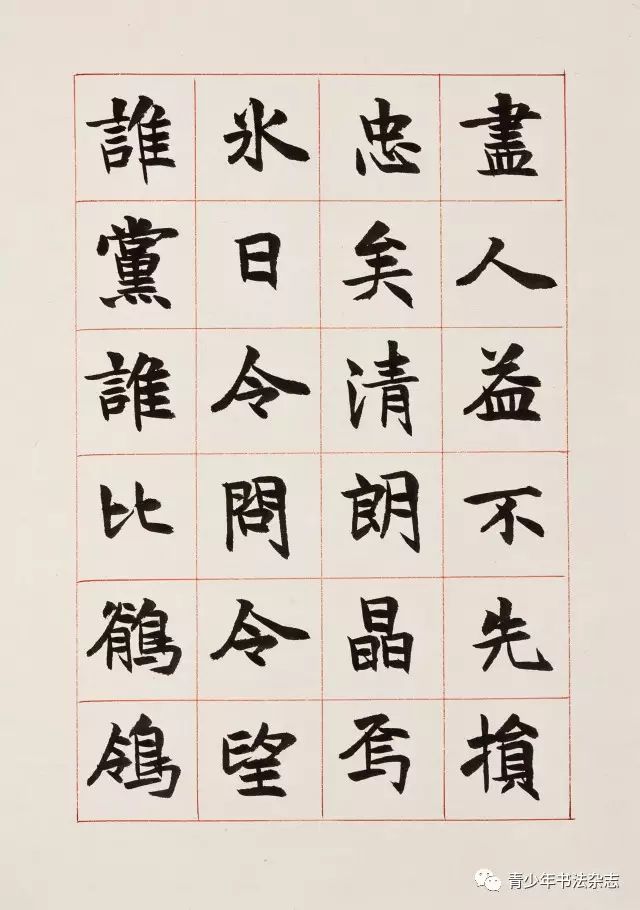 盡人益不先損
忠矣清朗晶焉
氷日令問令望
誰黨誰比鶺鴒
青少年书法杂志